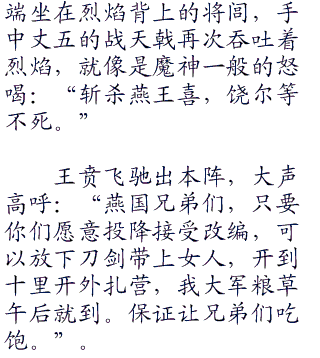 端坐在烈焰背上的将闾，手
中丈五的战天戟再次吞吐着
烈焰，就像是魔神一般的怒
喝：“斩杀燕王喜，饶尔等
不死。”
王贲飞驰出本阵，大声
高呼：“燕国兄弟们，只要
你们愿意投降接受改编，可
以放下刀剑带上女人，开到
十里开外扎营，我大军粮草
午后就到。保证让兄弟们吃
饱。”。